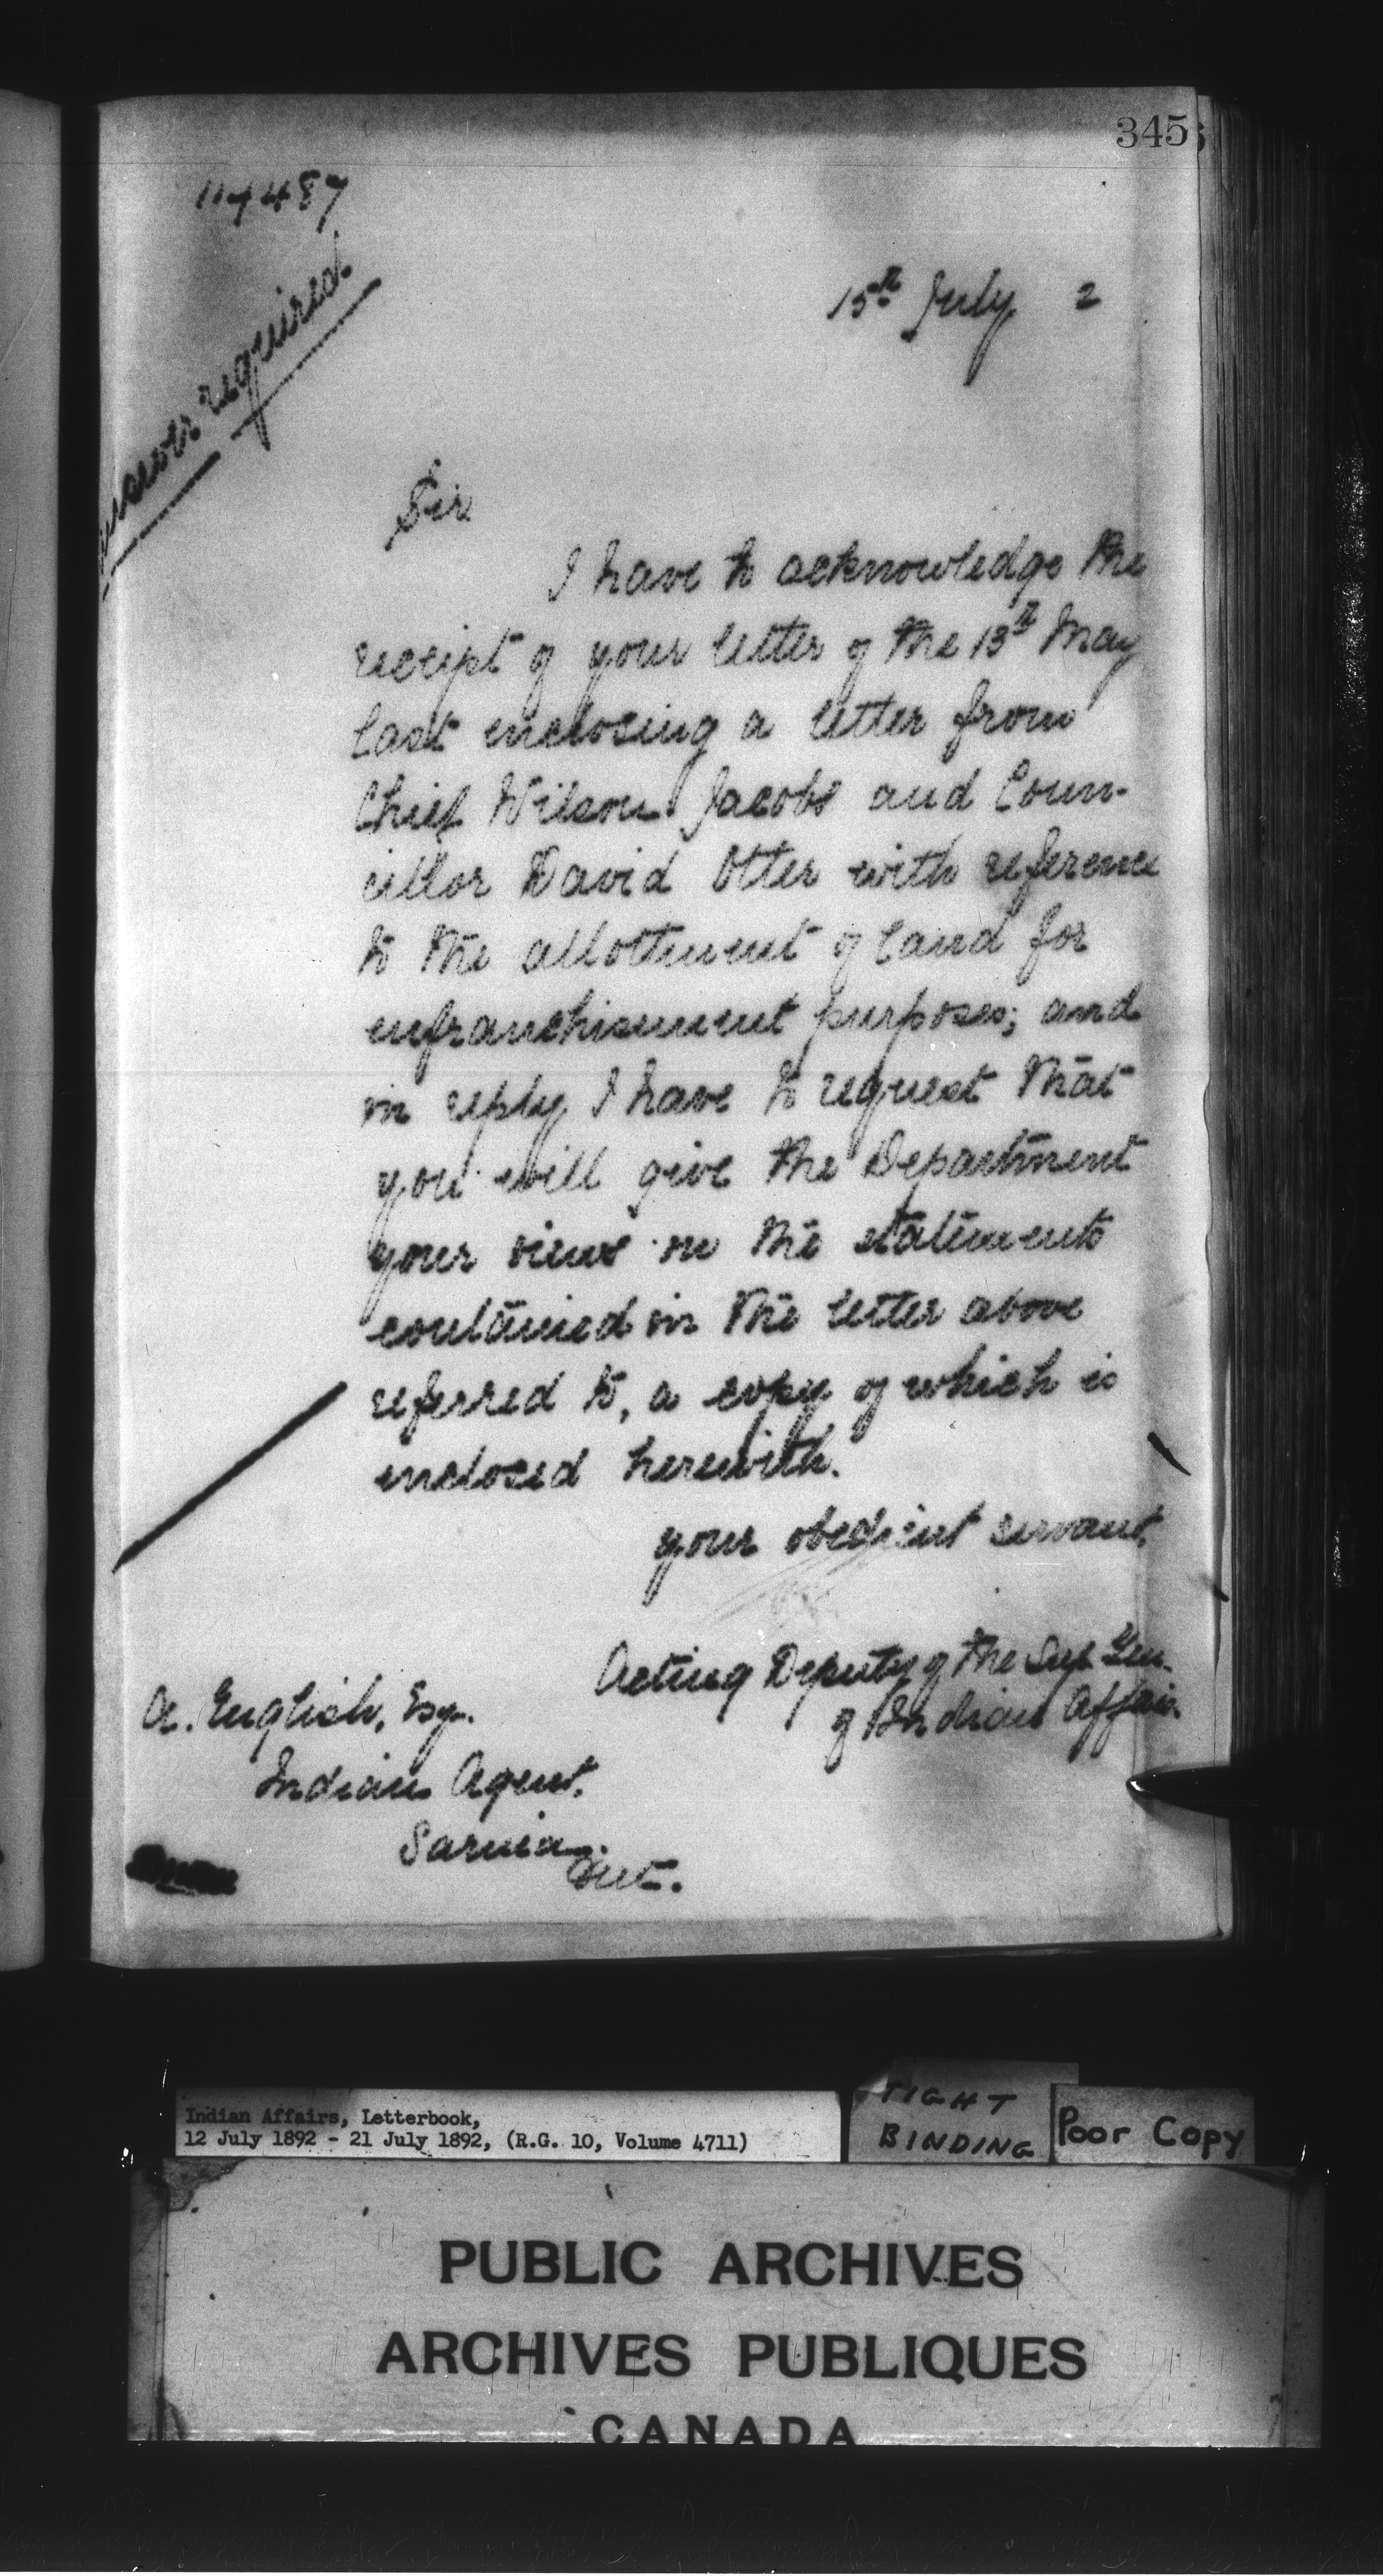 345
117487
Answer required.
15th July 2
Sir
I have to acknowledge the
receipt of your letter of the 13th May
last enclosing a letter from
Chief Wilson Jacobs and Coun-
cillor David Otter with reference
to the allottment of land for
enfranchisement purposes; and
in reply I have to request that
you will give the Department
your views on the statements
contained in the letter above
referred to, a copy of which is
enclosed herewith.
your obedient servant,
Acting Deputy of the Sup. Gen.
of Indian Affairs.
A. English, Esq.
Indian Agent,
Sarnia,
Ont.
Indian Affairs, Letterbook,
12 July 1892 - 21 July 1892, (R.G. 10, Volume 4711)
TIGHT
BINDING
Poor Copy
PUBLIC ARCHIVES
ARCHIVES PUBLIQUES
CANADA